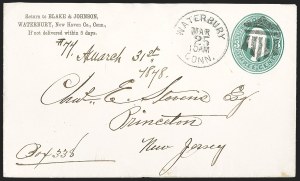 Return to BLAKE & JOHNSON,
WATERBURY, New Haven Co., Conn.,
If not delivered within 5 days.
WATERBURY
MAR
25
10AM
CONN.
March 31st
1878.
Chas. E. Stevens Esq.
Princeton
Box 338
New Jersey